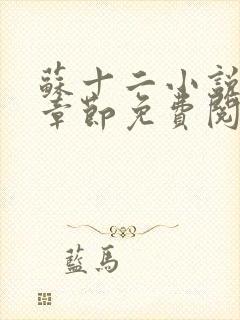 蘇十二小說
章節免費閱
藍馬